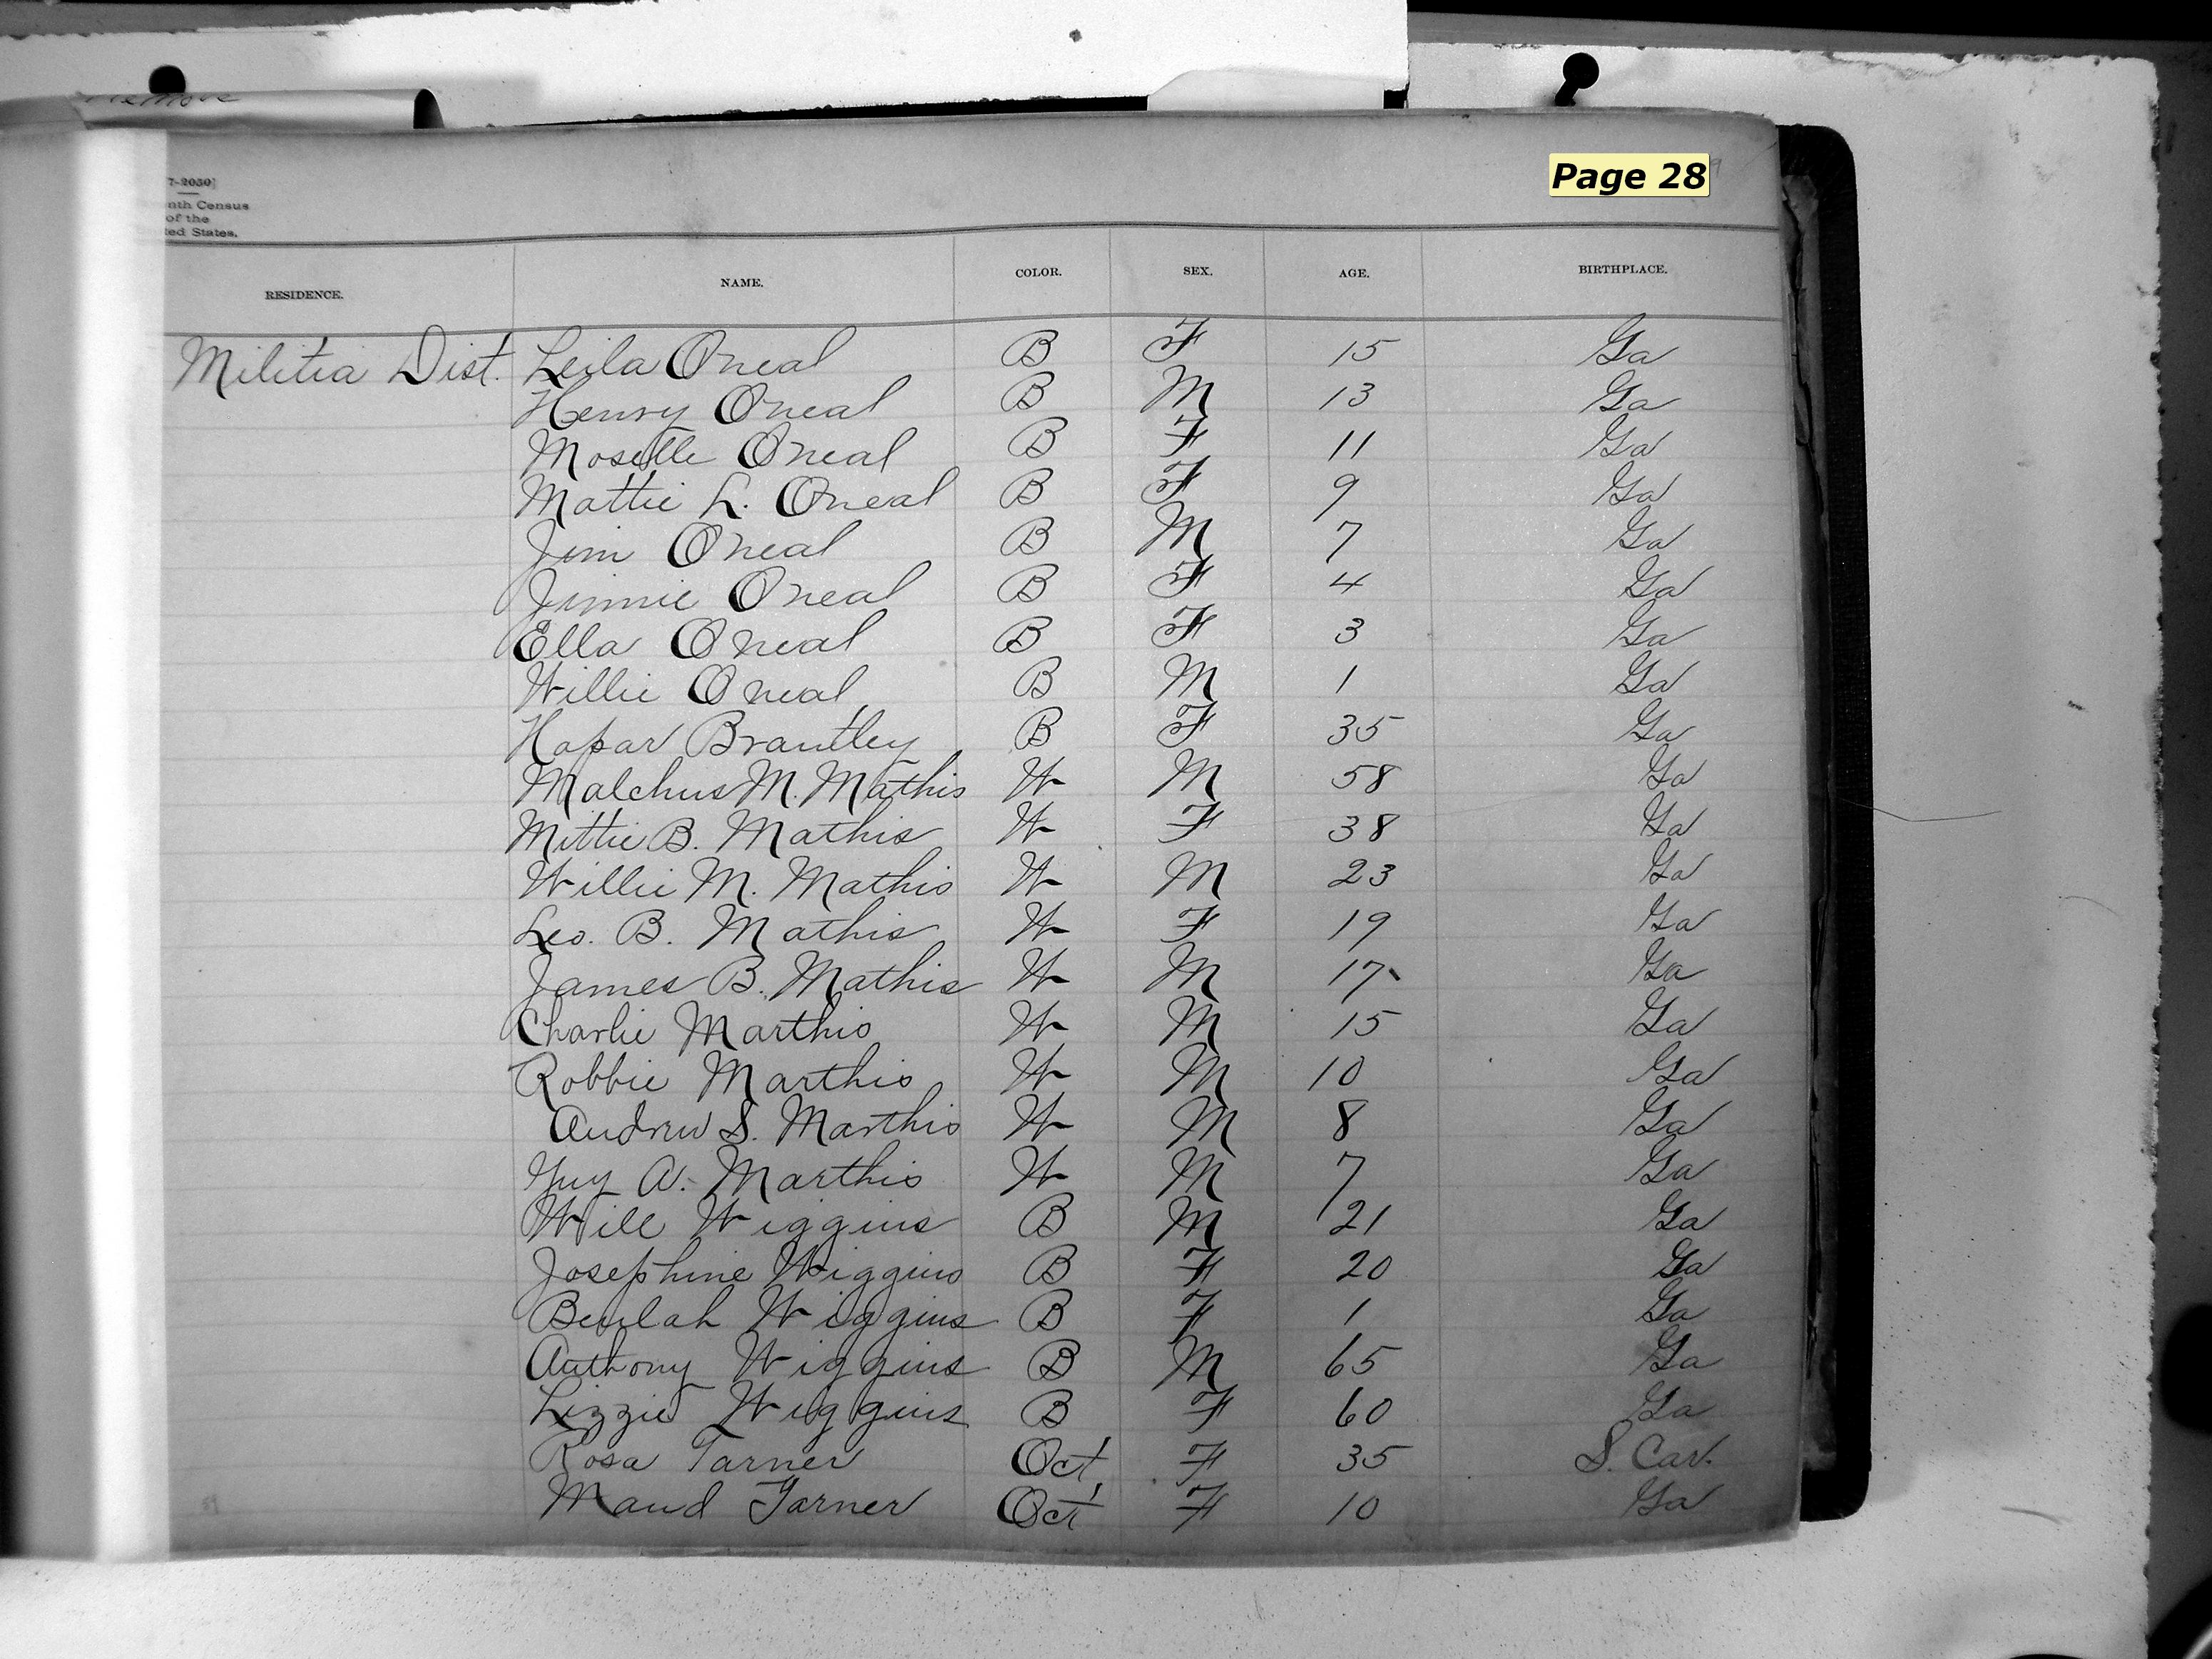 Remove
Page 28
7-2050]
nth Census
of the
ted States.
RESIDENCE. NAME. COLOR. SEX. AGE. BIRTHPLACE.
Militia Dist. Leila Oneal B F 15 Ga
Henry Oneal B M 13 Ga
Moselle Oneal B F 11 Ga
Mattie L. Oneal B F 9 Ga
Jim Oneal B M 7 Ga
Jimmie Oneal B F 4 Ga
Ella Oneal B F 3 Ga
Willie Oneal B M 1 Ga
Hapar Brantley B F 35 Ga
Malchus M. Mathis W M 58 Ga
Mittie B. Mathis W F 38 Ga
Willie M. Mathis W M 23 Ga
Leo. B. Mathis W F 19 Ga
James B. Mathis W M 17 Ga
Charlie Marthis W M 15 Ga
Robbie Marthis W M 10 Ga
Andrew S. Marthis W M 8 Ga
Guy A. Marthis W M 7 Ga
Will Wiggins B M 21 Ga
Josephine Wiggins B F 20 Ga
Beulah Wiggins B F 1 Ga
Anthony Wiggins B M 65 Ga
Lizzie Wiggins B F 60 Ga
Rosa Tarner Oct F 35 S. Car.
Maud Tarner Oct F 10 Ga